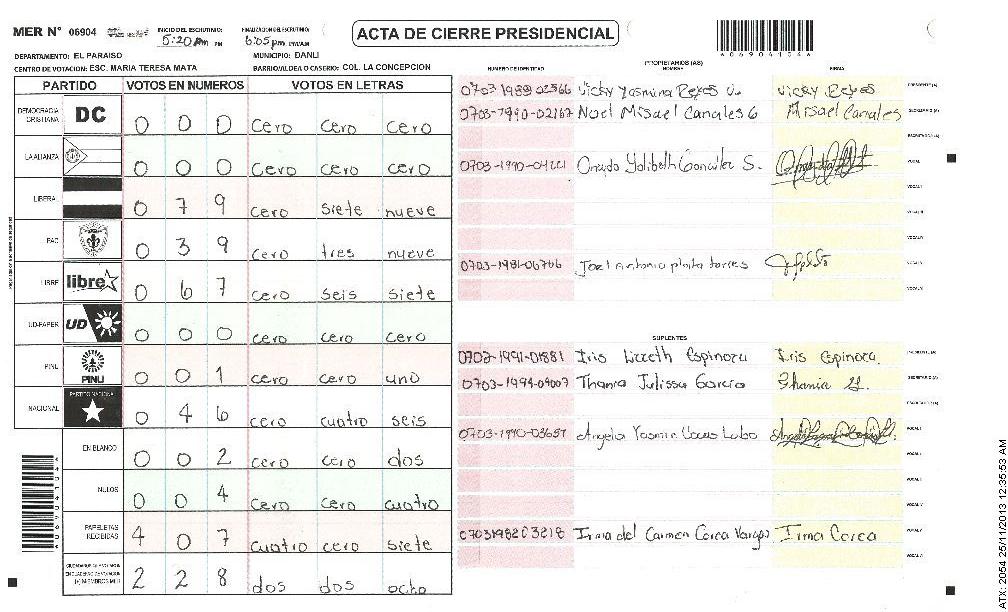 MER N° 06904 INICIO DEL ESCRUTINIO: 5:20 pm FINALIZACION DEL ESCRUTINIO: 6:05 pm PM/AM
ACTA DE CIERRE PRESIDENCIAL
DEPARTAMENTO: EL PARAISO MUNICIPIO: DANLI
CENTRO DE VOTACION: ESC. MARIA TERESA MATA BARRIO/ALDEA O CASERIO: COL. LA CONCEPCION
PARTIDO VOTOS EN NUMEROS VOTOS EN LETRAS
DEMOCRACIA CRISTIANA DC 0 0 0 cero cero cero
LA ALIANZA 0 0 0 cero cero cero
LIBERAL 0 7 9 cero siete nueve
PAC 0 3 9 cero tres nueve
LIBRE libre 0 6 7 cero seis siete
UD-FAPER UD 0 0 0 cero cero cero
PINU PINU 0 0 1 cero cero uno
NACIONAL PARTIDO NACIONAL 0 4 6 cero cuatro seis
EN BLANCO 0 0 2 cero cero dos
NULOS 0 0 4 cero cero cuatro
PAPELETAS RECIBIDAS 4 0 7 cuatro cero siete
2 2 8 dos dos ocho
PROPIETARIOS (AS)
NUMERO DE IDENTIDAD NOMBRE FIRMA
0703 1988 02366 Vicky Yasmina Reyes Vicky Reyes PRESIDENTE (A)
0703-1990-02167 Noel Misael Canales G Misael Canales SECRETARIO (A)
ESCRUTADOR (A)
0703-1990- Yolibeth González S. VOCAL I
VOCAL II
VOCAL III
VOCAL IV
0703-1981-06706 Joel Antonio torres VOCAL V
VOCAL VI
SUPLENTES
0703-1991-01881 Iris Lizeth Espinoza Iris Espinoza PRESIDENTE (A)
0703-1994-04007 Thania Julissa García Thania SECRETARIO (A)
ESCRUTADOR (A)
0703-1990-03657 Angela Yasmin Lobo VOCAL I
0703198203218 Irma del Carmen Cerca Vargas Irma Cerca VOCAL V
ATX: 2054 25/11/2013 12:35:53 AM